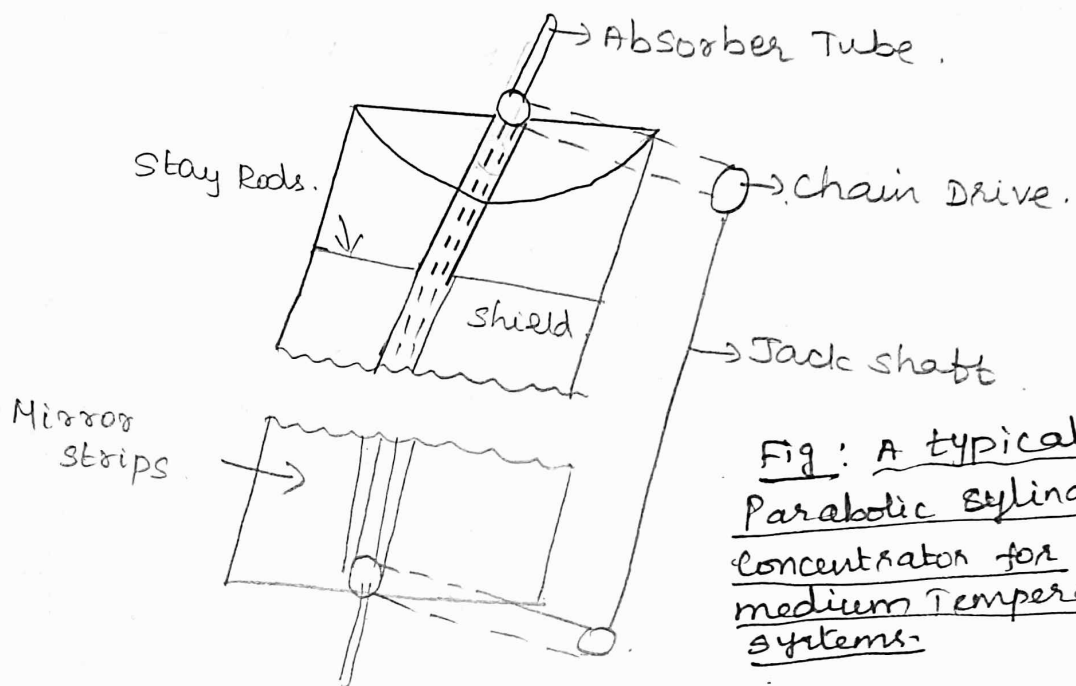 Absorber Tube.
Stay Rods.
Chain Drive.
Shield
Jack shaft
Mirror
strips
Fig: A typical
Parabolic
concentrator for
medium
systems.